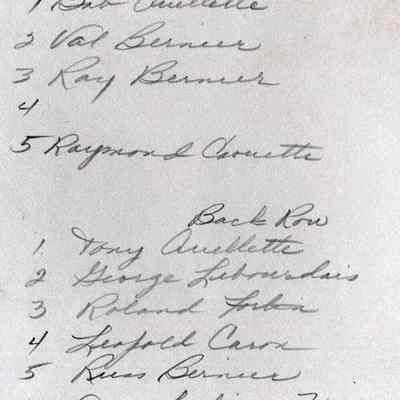 1 Bob Ouellette
2 Val Bernier
3 Ray Bernier
4
5 Raymond Caouette
Back Row
1. Tony Ouellette
2 George Lebourdais
3 Roland Fortin
4 Leopold Caron
5 Russ Bernier